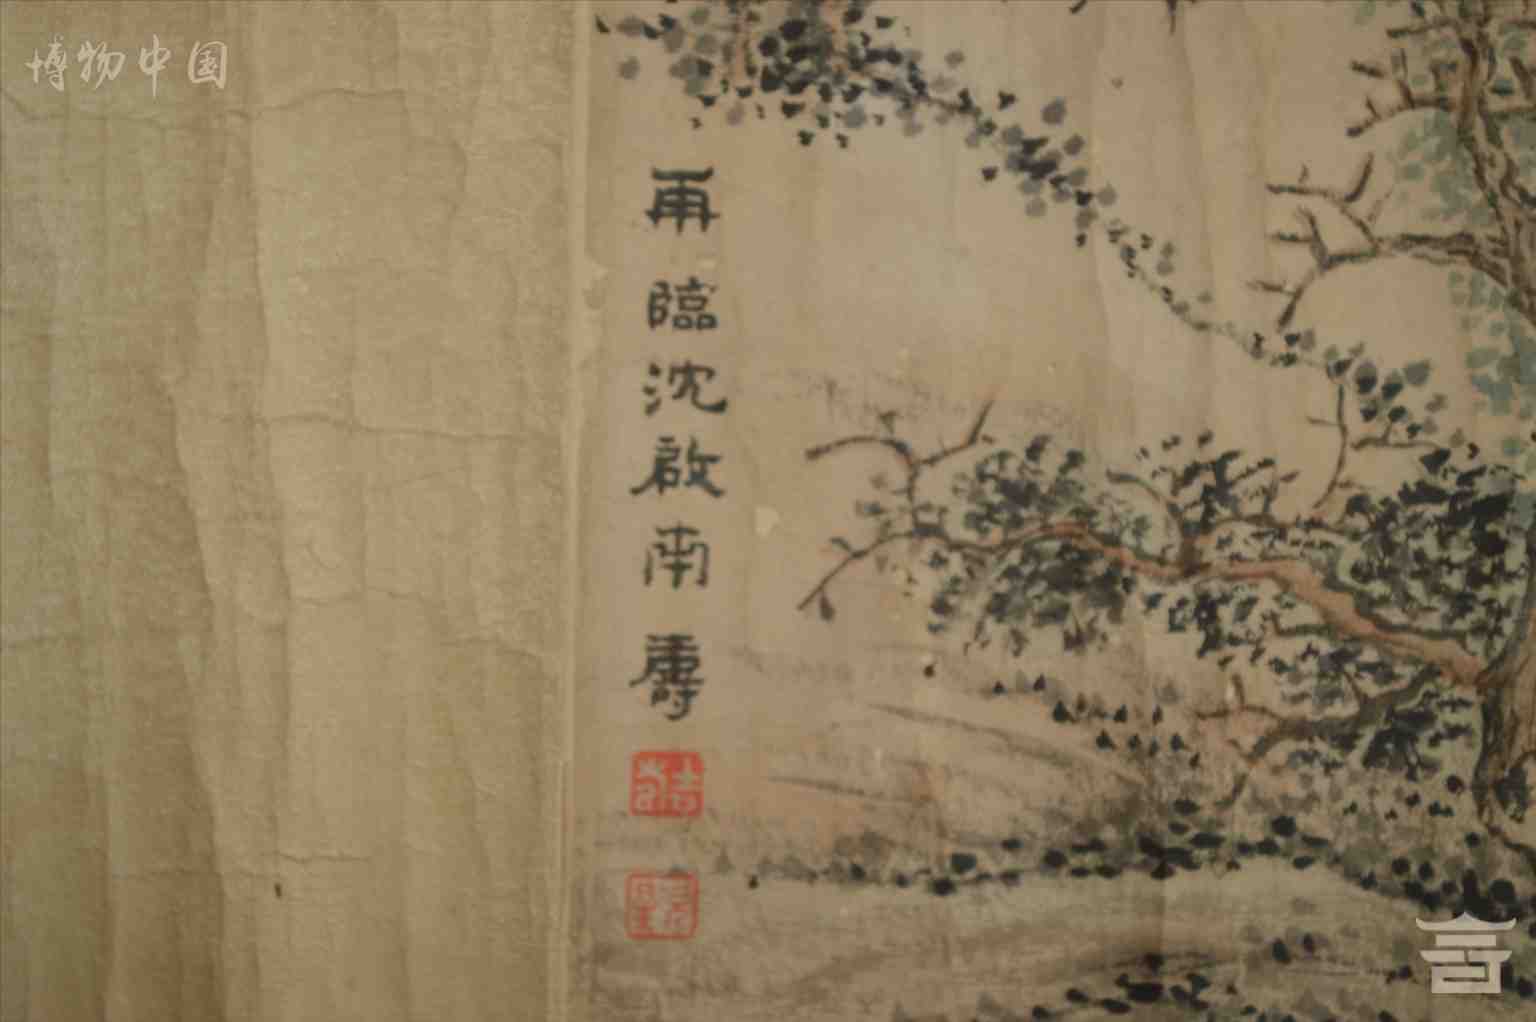 博物中国
再臨沈啟南壽